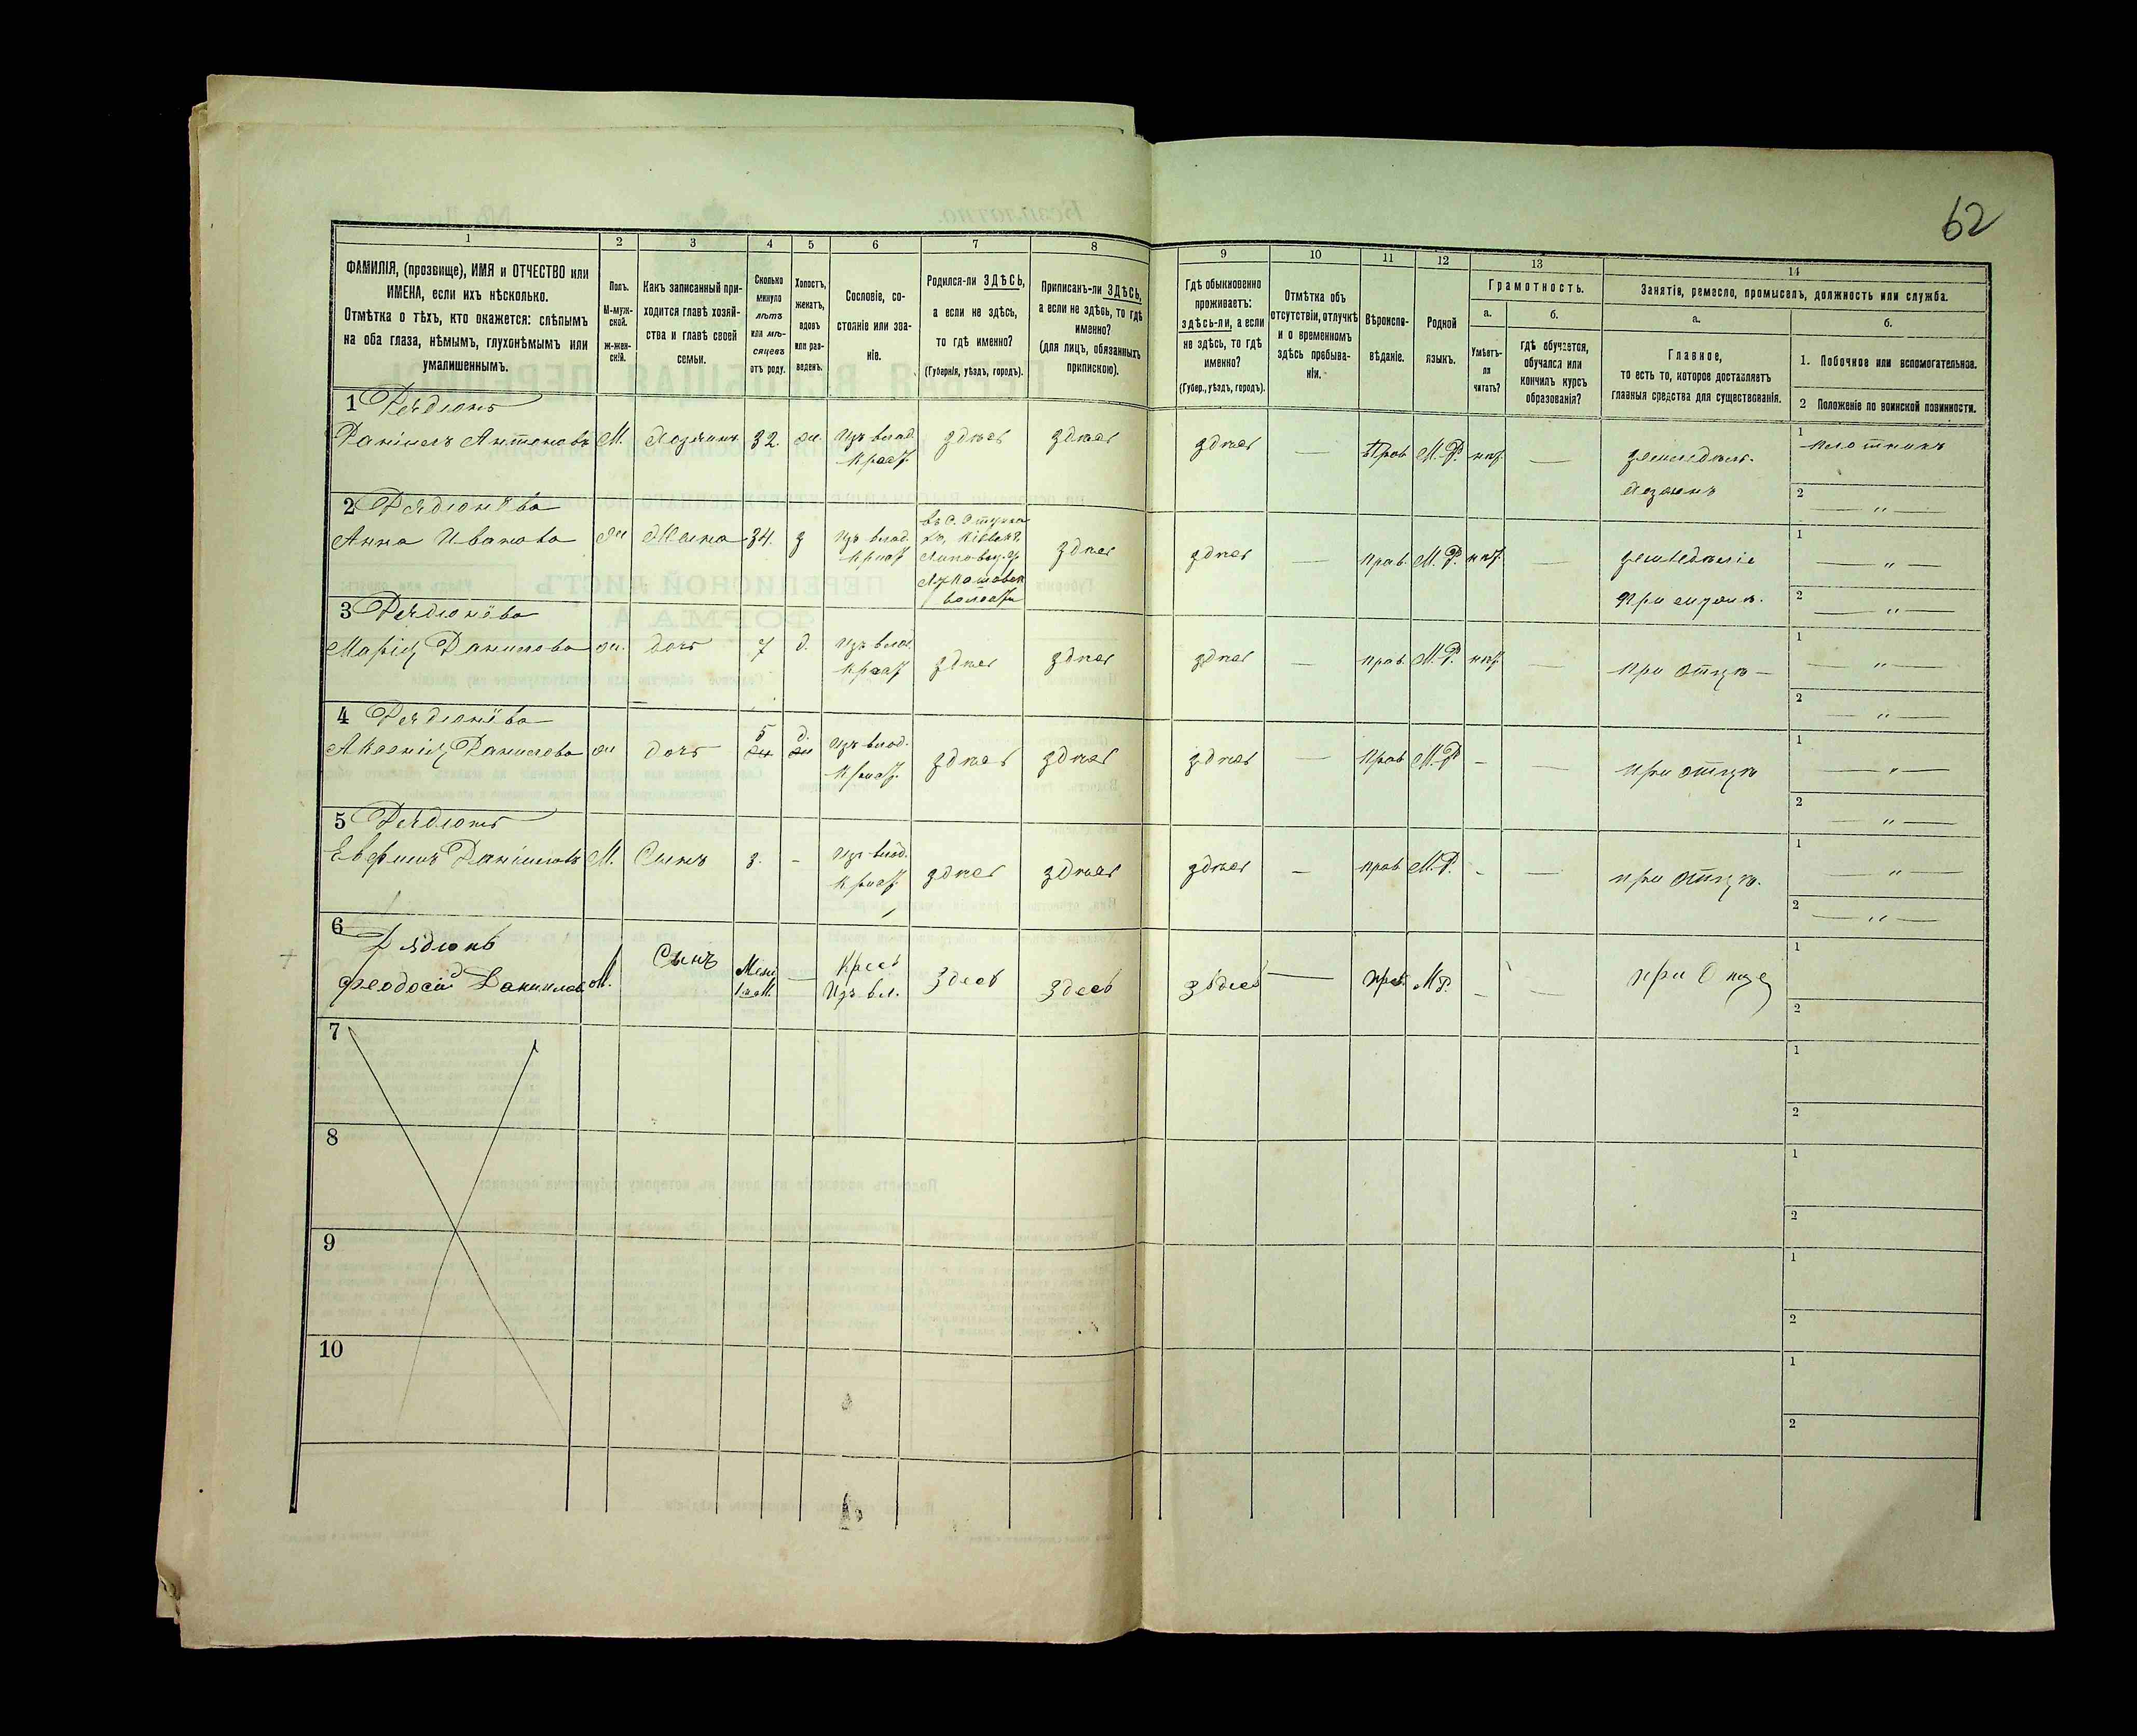 62
1
ФАМИЛІЯ, (прозвище), ИМЯ и ОТЧЕСТВО или
ИМЕНА, если ихъ нѣсколько.
Отмѣтка о тѣхъ, кто окажется: слѣпымъ
на оба глаза, нѣмымъ, глухонѣмымъ или
умалишеннымъ.
2
Полъ.
М-муж-
ской.
ж-жен-
скій.
3
Какъ записанный при-
ходится главѣ хозяй-
ства и главѣ своей
семьи.
4
Сколько
минуло
лѣтъ
или мѣ-
сяцевъ
отъ роду.
5
Холостъ,
женатъ,
вдовъ
или раз-
веденъ.
6
Сословіе, со-
стояніе или зва-
ніе.
7
Родился-ли ЗДѢСЬ,
а если не здѣсь,
то гдѣ именно?
(Губернія, уѣздъ, городъ).
8
Приписанъ-ли ЗДѢСЬ,
а если не здѣсь, то гдѣ
именно?
(для лицъ, обязанныхъ
припискою).
9
Гдѣ обыкновенно
проживаетъ:
здѣсь-ли, а если
не здѣсь, то гдѣ
именно?
(Губер., уѣздъ, городъ).
10
Отмѣтка объ
отсутствіи, отлучкѣ
и о временномъ
здѣсь пребыва-
ніи.
11
Вѣроиспо-
вѣданіе.
12
Родной
языкъ.
13
Грамотность.
а.
Умѣетъ-
ли
читать?
б.
гдѣ обучается,
обучался или
кончилъ курсъ
образованія?
14
Занятія, ремесло, промыселъ, должность или служба.
а.
Главное,
то есть то, которое доставляетъ
главныя средства для существованія.
б.
1. Побочное или вспомогательное.
2 Положеніе по воинской повинности.
1
Даніилъ Антоновъ М. Хозяинъ 32. ж. Изъ влад.
Крест.
здѣсь здѣсь здѣсь — Прав. М.Р. нѣт. —
земледѣл.
хозяинъ
1 плотникъ
2 — " —
2
Анна Иванова ж Жена 34. з Изъ влад.
Крест
волости
здѣсь здѣсь — прав. М.Р. нѣт. —
земледѣліе
При мужѣ.
1 — " —
2 — " —
3
Марія Данилова ж. дочь 7 д. Изъ влад.
Крест
здѣсь здѣсь здѣсь — прав. М.Р. нѣт. — при отцѣ —
1 — " —
2 — " —
4
Данилова ж дочь 5 д. Изъ влад.
Крест.
здѣсь здѣсь здѣсь — прав М.Р - — при отцѣ
1 — " —
2 — " —
5
Даніиловъ М. Сынъ 3. - Изъ влад.
Крест.
здѣсь здѣсь здѣсь — прав М.Р. - — при отцѣ.
1 — " —
2 — " —
6
Феодосій Даниилов М. Сынъ — Крест
Изъ вл.
Здесь здесь здѣсь — прав. М.Р. - — при Отце
1
2
7
1
2
8
1
2
9
1
2
10
1
2